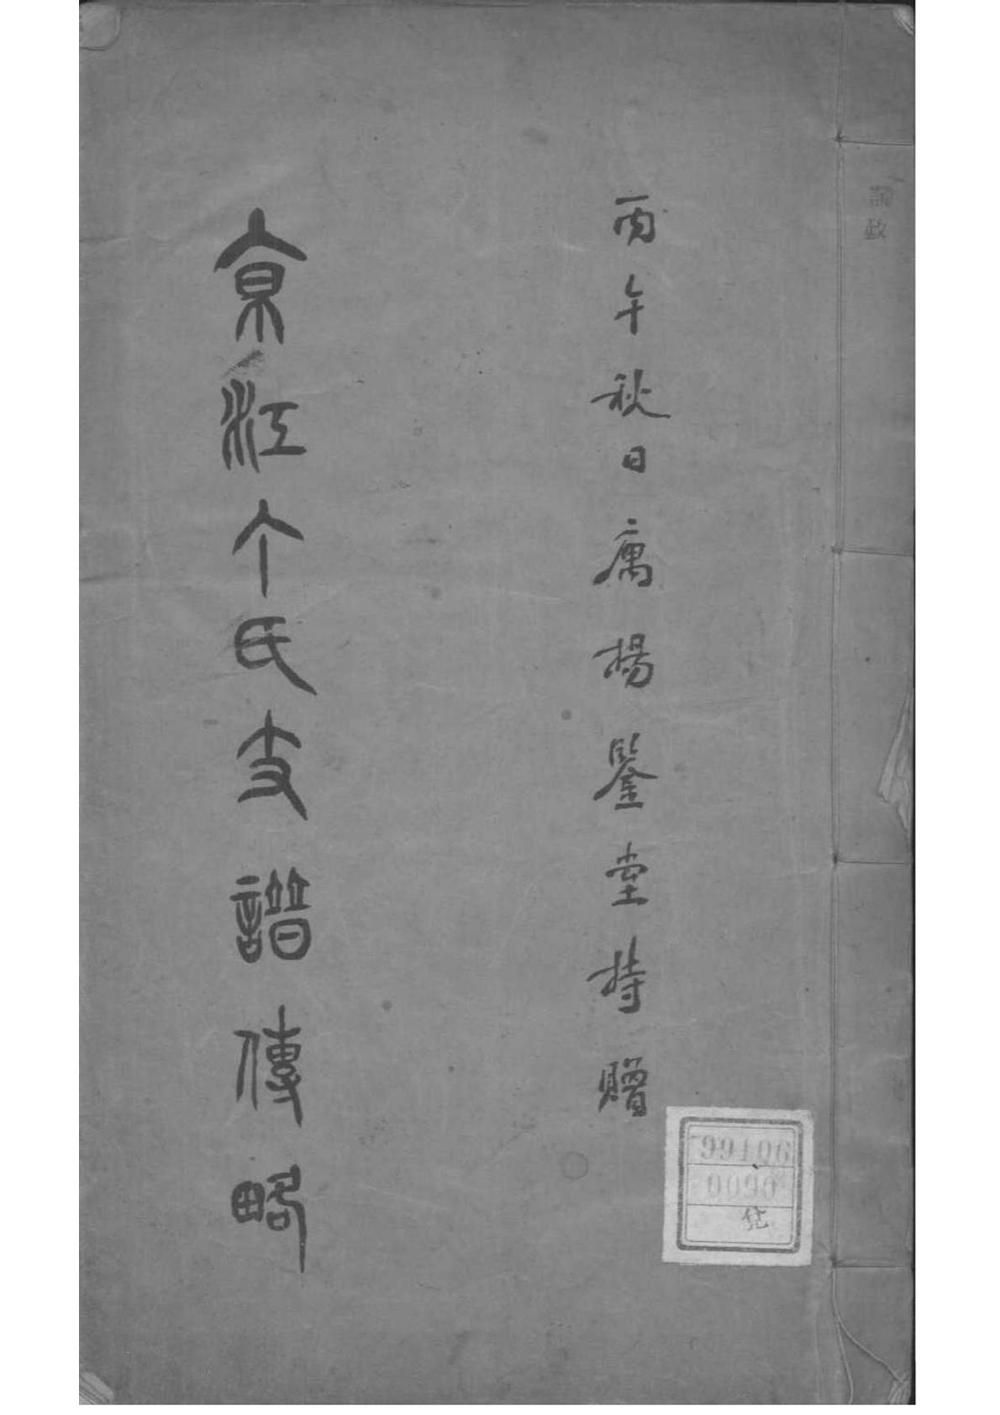 丙午秋日庽揚鑒堂持贈
京江个氏支譜傳略
99106
0090